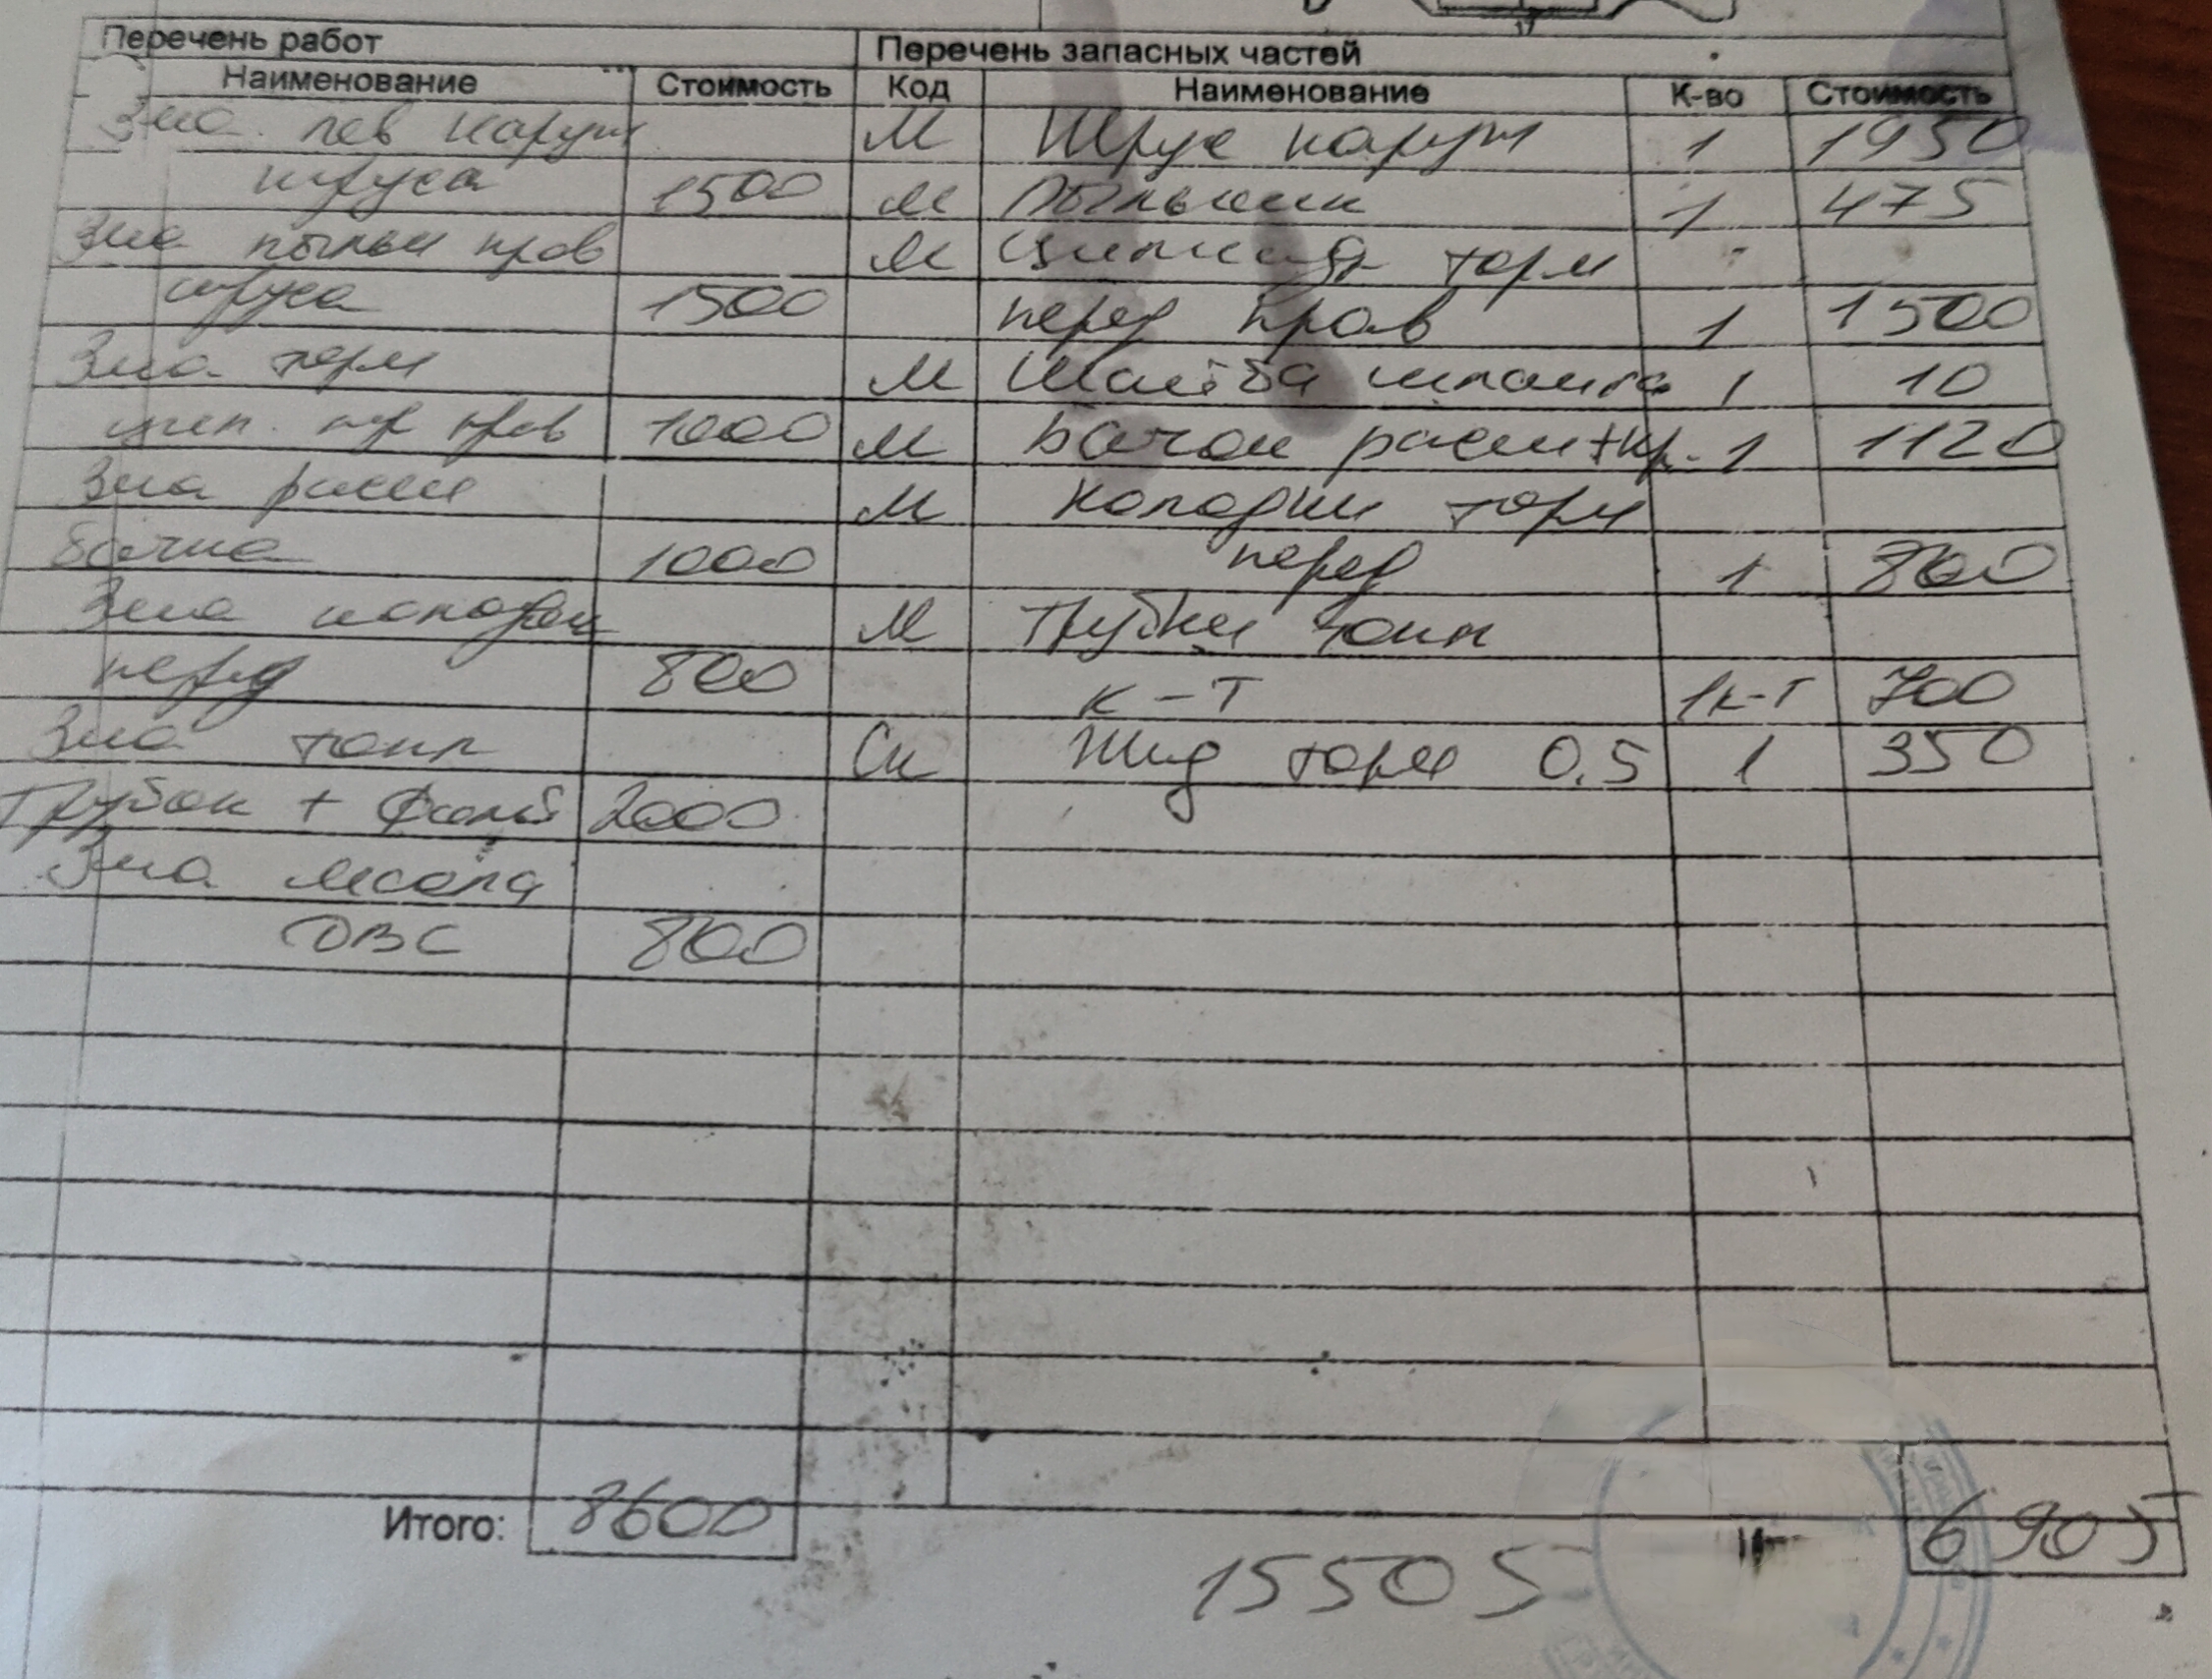 Перечень работ Перечень запасных частей
Наименование Стоимость Код Наименование К-во Стоимость
Зиа. лев наруж М Шрус наруж 1 1950
шруса 1500 М Пыльник 1 475
Зиа пыльн прав М Цилиндр торм
шруса 1500 перед прав 1 1500
Зиа торм М Шайба шпонка 1 10
цил. пер прав 1000 М Бачок расш+кр. 1 1120
Зиа расш М Колодки торм
бачка 1000 перед 1 800
Зиа колодки М Трубки топл
перед 800 К-Т 1к-т 700
Зиа топл Ск Жид торм 0.5 1 350
Трубок + 2000
Зиа масла
ДВС 800
Итого: 8600 6905
15505